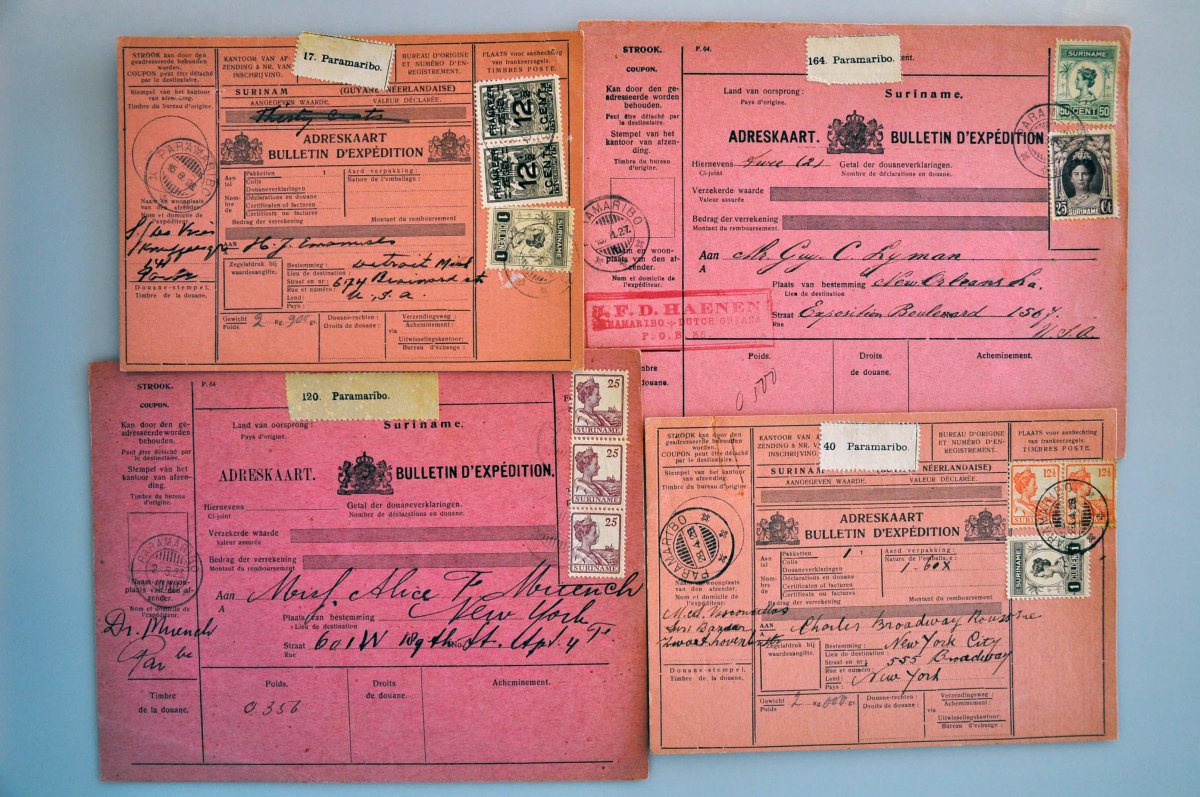 STROOK kan door den
geadresseerde behouden
worden.
COUPON peut être détaché
par le destinataire.
Stempel van het kantoor
van afzending.
Timbre du bureau d'origine.
PARAMARIBO
Naam en woonplaats
van den afzender.
Nom et domicile de
l'expéditeur:
Douane-stempel.
Timbre de la douane.
KANTOOR VAN AF-
ZENDING & NR. VAN
INSCHRIJVING.
17. Paramaribo.
BUREAU D'ORIGINE
ET NUMÉRO D'EN-
REGISTREMENT.
PLAATS voor aanhechting
van frankeerzegels.
TIMBRES POSTE.
SURINAM (GUYANE NÉERLANDAISE)
AANGEGEVEN WAARDE. VALEUR DÉCLARÉE.
Thirty Cents
ADRESKAART
BULLETIN D'EXPÉDITION.
Aan
tal
Nom-
bre
de
Pakketten
Colis
Douaneverklaringen
Déclarations en douane
Certificaten of facturen
Certificats ou factures
Aard verpakking:
Nature de l'emballage:
Bedrag der verrekening Montant du remboursement
AAN H. J. Emanuels
À
Zegelafdruk bij
waardeaangifte.
Bestemming: Detroit Mich
Lieu de destination:
Straat en nr: 674 Brainard st
Rue et numéro:
Land: U.S.a.
Pays:
Gewicht 2 Kg. 900 gr.
Poids
Douane-rechten:
Droits de douane:
Verzendingsweg:
Acheminement:
via
Uitwisselingskantoor:
Bureau d'échange:
FRANKEER ZEGEL
12½
CENT
FRANKEER ZEGEL
12½
CENT
1
SURINAME
GULDEN
STROOK.
COUPON.
Kan door den ge-
adresseerde worden
behouden.
Peut être détaché par
le destinataire.
Stempel van het
kantoor van afzen-
ding.
Timbre du bureau
d'origine.
PARAMARIBO
Naam en woon-
plaats van den af-
zender.
Nom et domicile de
l'expéditeur.
P. 64.
164. Paramaribo.
Land van oorsprong: Suriname.
Pays d'origine.
ADRESKAART. BULLETIN D'EXPÉDITION.
Hiernevens twee (2) Getal der douaneverklaringen.
Ci-joint Nombre de déclarations en douane.
Verzekerde waarde
Valeur assurée
Bedrag der verrekening
Montant du remboursement.
Aan Mr. Guy. C. Lyman
A
Plaats van bestemming New Orleans La.
Lieu de destination
Straat Exposition Boulevard 1507.
Rue
U.S.A.
J.F.D. HAENEN
PARAMARIBO - DUTCH GUYANA
P.O.B. 56.
Poids. Droits Acheminement.
de douane.
SURINAME
50 CENT 50
25 Ct
SURINAME
STROOK.
COUPON.
Kan door den ge-
adresseerde worden
behouden.
Peut être détaché par
le destinataire.
Stempel van het
kantoor van afzen-
ding.
Timbre du bureau
d'origine.
PARAMARIBO
Naam en woon-
plaats van den af-
zender.
Nom et domicile de
l'expéditeur.
Dr. Muench
Par bo
Timbre
de la douane.
P. 64
120. Paramaribo.
Land van oorsprong: Suriname.
Pays d'origine.
ADRESKAART. BULLETIN D'EXPÉDITION.
Hiernevens Getal der douaneverklaringen.
Ci-joint Nombre de déclarations en douane.
Verzekerde waarde
Valeur assurée
Bedrag der verrekening
Montant du remboursement
Aan Mrs. Alice F. Muench
A
Plaats van bestemming New York
Lieu de destination
Straat 601 W 189th St. Apt. 4 F.
Rue
Poids. Droits Acheminement.
de douane.
0.356
25
SURINAME
25
SURINAME
25
SURINAME
STROOK kan door den
geadresseerde behouden
worden.
COUPON peut être détaché
par le destinataire.
Stempel van het kantoor
van afzending.
Timbre du bureau d'origine.
PARAMARIBO
Naam en woonplaats
van den afzender.
Nom et domicile de
l'expéditeur:
Douane-stempel.
Timbre de la douane.
40 Paramaribo.
BUREAU D'ORIGINE
ET NUMÉRO D'EN-
REGISTREMENT.
PLAATS voor aanhechting
van frankeerzegels.
TIMBRES POSTE.
SURINAM (GUYANE NÉERLANDAISE)
AANGEGEVEN WAARDE. VALEUR DÉCLARÉE.
ADRESKAART
BULLETIN D'EXPÉDITION.
Aan
tal
Nom-
bre
de
Pakketten 1
Colis
Douaneverklaringen
Déclarations en douane
Certificaten of facturen
Certificats ou factures
Aard verpakking:
Nature de l'emballage:
1. box
Bedrag der verrekening Montant du remboursement
AAN Charles Broadway Rousse
À
Zegelafdruk bij
waardeaangifte.
Bestemming: New York City
Lieu de destination:
Straat en nr: 555 Broadway
Rue et numéro:
Land: New York
Pays:
Gewicht 2 Kg. 000 gr.
Poids
Douane-rechten:
Droits de douane:
Verzendingsweg:
Acheminement:
via
Uitwisselingskantoor:
Bureau d'échange:
12½
12½
SURINAME
SURINAME
1
GULDEN